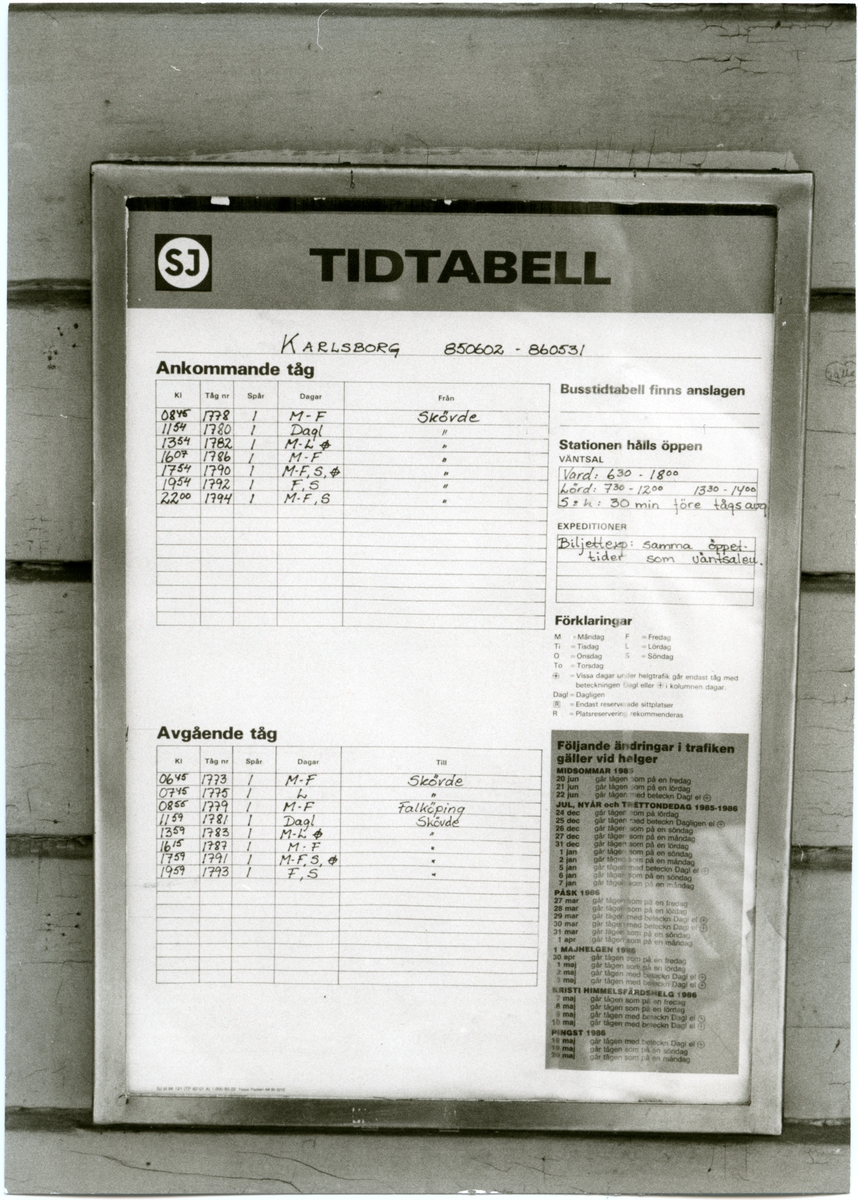 SJ TIDTABELL
KARLSBORG 850602 - 860531
Ankommande tåg
Kl Tåg nr Spår Dagar Från
0845 1778 1 M-F Skövde
1154 1780 1 Dagl "
1354 1782 1 M-L ⌽ "
1607 1786 1 M-F "
1754 1790 1 M-F, S, ⌽ "
1954 1792 1 F, S "
2200 1794 1 M-F, S "
Avgående tåg
Kl Tåg nr Spår Dagar Till
0645 1773 1 M-F Skövde
0745 1775 1 L "
0855 1779 1 M-F Falköping
1159 1781 1 Dagl Skövde
1359 1783 1 M-L ⌽ "
1615 1787 1 M-F "
1759 1791 1 M-F, S, ⌽ "
1959 1793 1 F, S "
Busstidtabell finns anslagen
Stationen hålls öppen
VÄNTSAL
Vard: 630 - 1800
Lörd: 730 - 1200 1330 - 1400
S+h: 30 min före tågs avg
EXPEDITIONER
Biljettexp: samma öppet-
tider som väntsalen.
Förklaringar
M = Måndag F = Fredag
Ti = Tisdag L = Lördag
O = Onsdag S = Söndag
To = Torsdag
⊕ = Vissa dagar under helgtrafik går endast tåg med
beteckningen Dagl eller ⊕ i kolumnen dagar.
Dagl = Dagligen
R = Endast reserverade sittplatser
R = Platsreservering rekommenderas
Följande ändringar i trafiken
gäller vid helger
MIDSOMMAR 1985
20 jun går tågen som på en fredag
21 jun går tågen som på en lördag
22 jun går tågen med beteckn Dagl el ⊕
JUL, NYÅR och TRETTONDEDAG 1985-1986
24 dec går tågen som på lördag
25 dec går tågen med beteckn Dagligen el ⊕
26 dec går tågen som på en söndag
27 dec går tågen som på en måndag
31 dec går tågen som på en lördag
1 jan går tågen som på en söndag
2 jan går tågen som på en måndag
5 jan går tågen med beteckn Dagl el ⊕
6 jan går tågen som på en söndag
7 jan går tågen som på en måndag
PÅSK 1986
27 mar går tågen som på en fredag
28 mar går tågen som på en lördag
29 mar går tågen med beteckn Dagl el ⊕
30 mar går tågen med beteckn Dagl el ⊕
31 mar går tågen som på en söndag
1 apr går tågen som på en måndag
1 MAJHELGEN 1986
30 apr går tågen som på en fredag
1 maj går tågen som på en lördag
2 maj går tågen med beteckn Dagl el ⊕
3 maj går tågen med beteckn Dagl el ⊕
KRISTI HIMMELSFÄRDSHELG 1986
7 maj går tågen som på en fredag
8 maj går tågen som på en lördag
9 maj går tågen med beteckn Dagl el ⊕
10 maj går tågen med beteckn Dagl el ⊕
PINGST 1986
18 maj går tågen med beteckn Dagl el ⊕
19 maj går tågen som på en söndag
20 maj går tågen som på en måndag